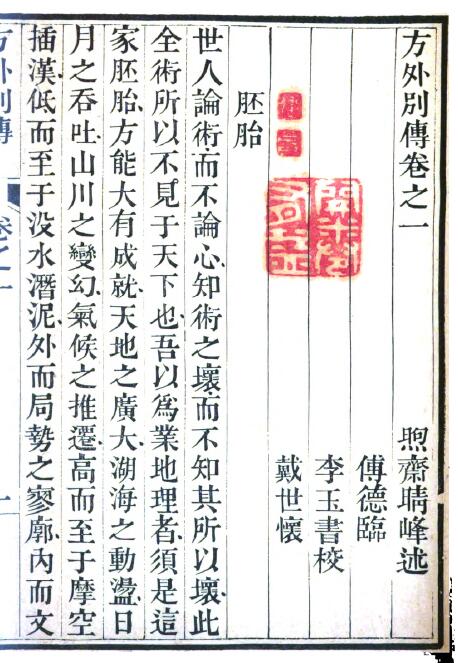 方外別傳卷之一
煦齋晴峰述
傅德臨
李玉書校
戴世懷
胚胎
世人論術而不論心知術之壞而不知其所以壞此
全術所以不見于天下也吾以為業地理者須是這
家胚胎方能大有成就天地之廣大湖海之動盪日
月之吞吐山川之變幻氣候之推遷高而至于摩空
插漢低而至于没水潛泥外而局勢之寥廓內而文
方外別傳
卷之一
一